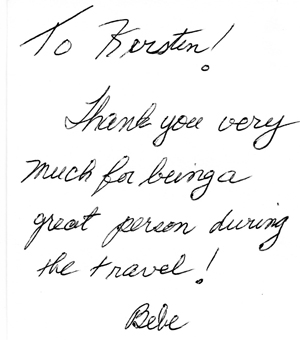 To Kersten!
Thank you very
much for being a
great person during
the travel!
Bebe